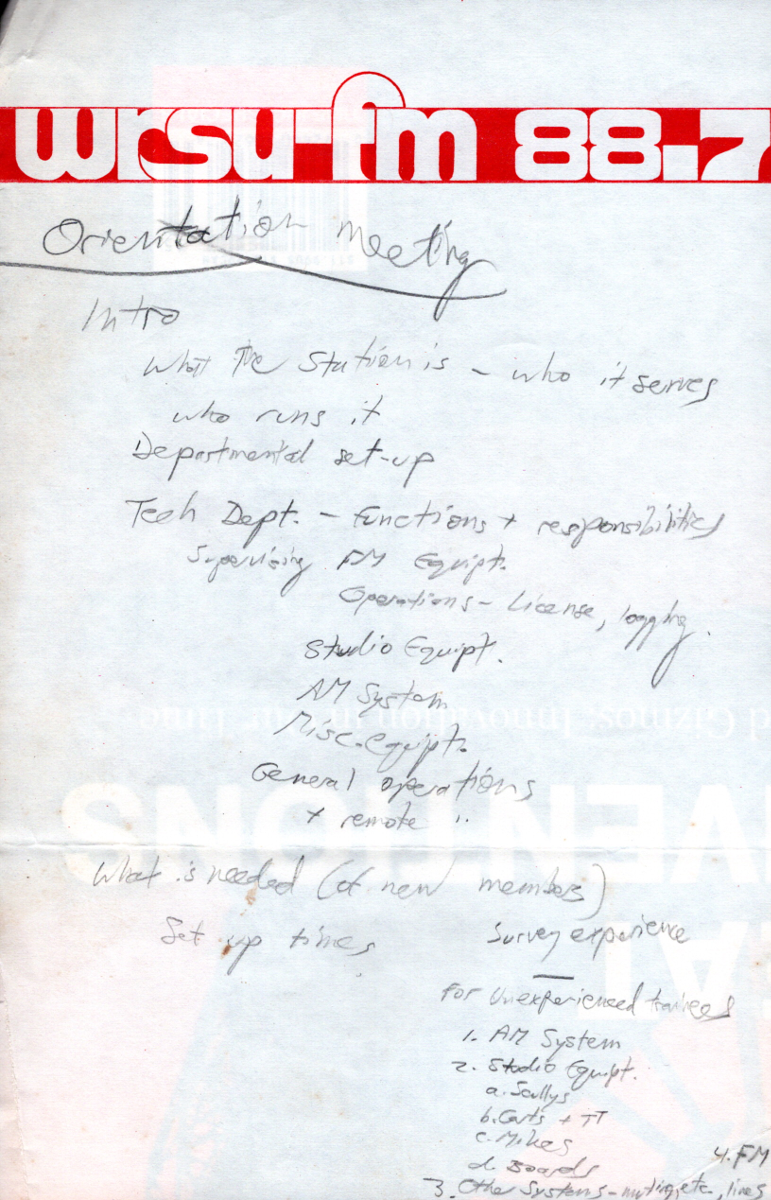 wrsu-fm 88.7
Orientation Meeting
Intro
What the Station is - who it serves
who runs it
Departmental set-up
Tech Dept. - Functions + responsibilities
Supervising FM Equipt.
Operations - License, logging.
Studio Equipt.
AM System
Misc. equipt.
General operations
+ remote "
What is needed (of new members)
Set up times
Survey experience
For Unexperienced trainees
1. AM System
2. Studio Equipt.
a. Scullys
b. Carts + TT
c. Mikes
d. Boards
4. FM
3. Other Systems - etc, lines
d Gizmos: Innovation in Our Time
VENTIONS